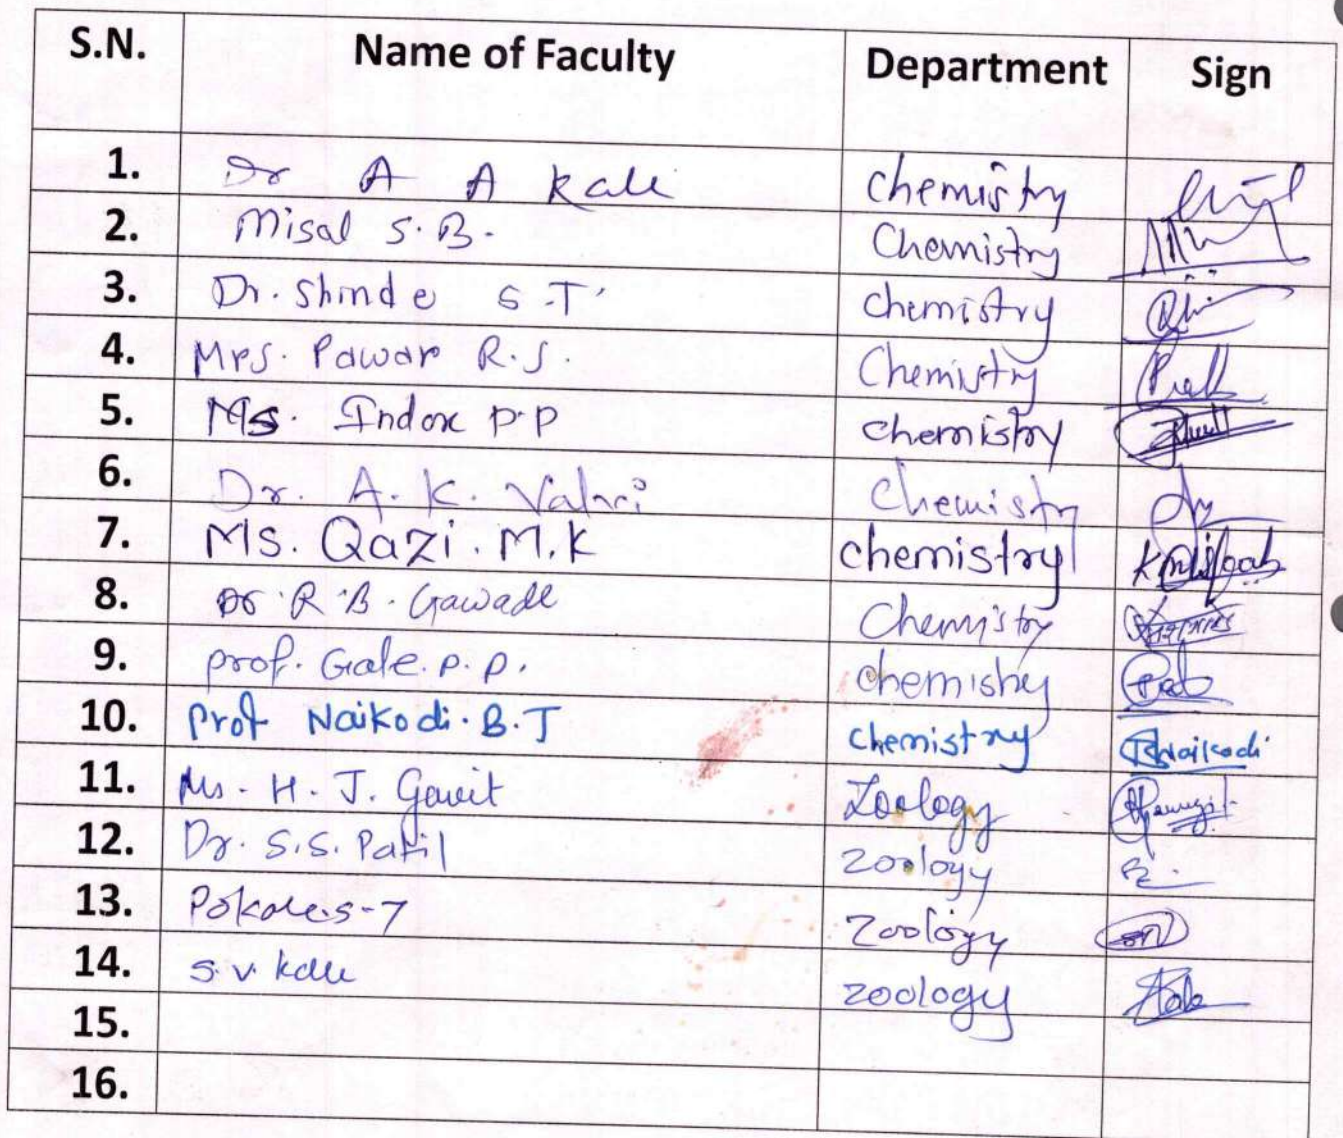 S.N. Name of Faculty Department Sign
1. Dr A A Kale chemistry
2. Misal S.B. Chemistry
3. Dr. Shinde S.T. chemistry
4. Mrs. Pawar R.S. Chemistry
5. Ms. Indore P.P chemistry
6. Dr. A. K. Chemistry
7. Ms. Qazi. M.K chemistry
8. Dr. R.B. Gawade Chemistry
9. prof. Gale. P. P. chemistry
10. Prof Naikodi. B.J chemistry Naikodi
11. Ms. H. J. Gavit Zoology
12. Dr. S.S. Patil zoology
13. zoology
14. S.V. Kale zoology
15.
16.